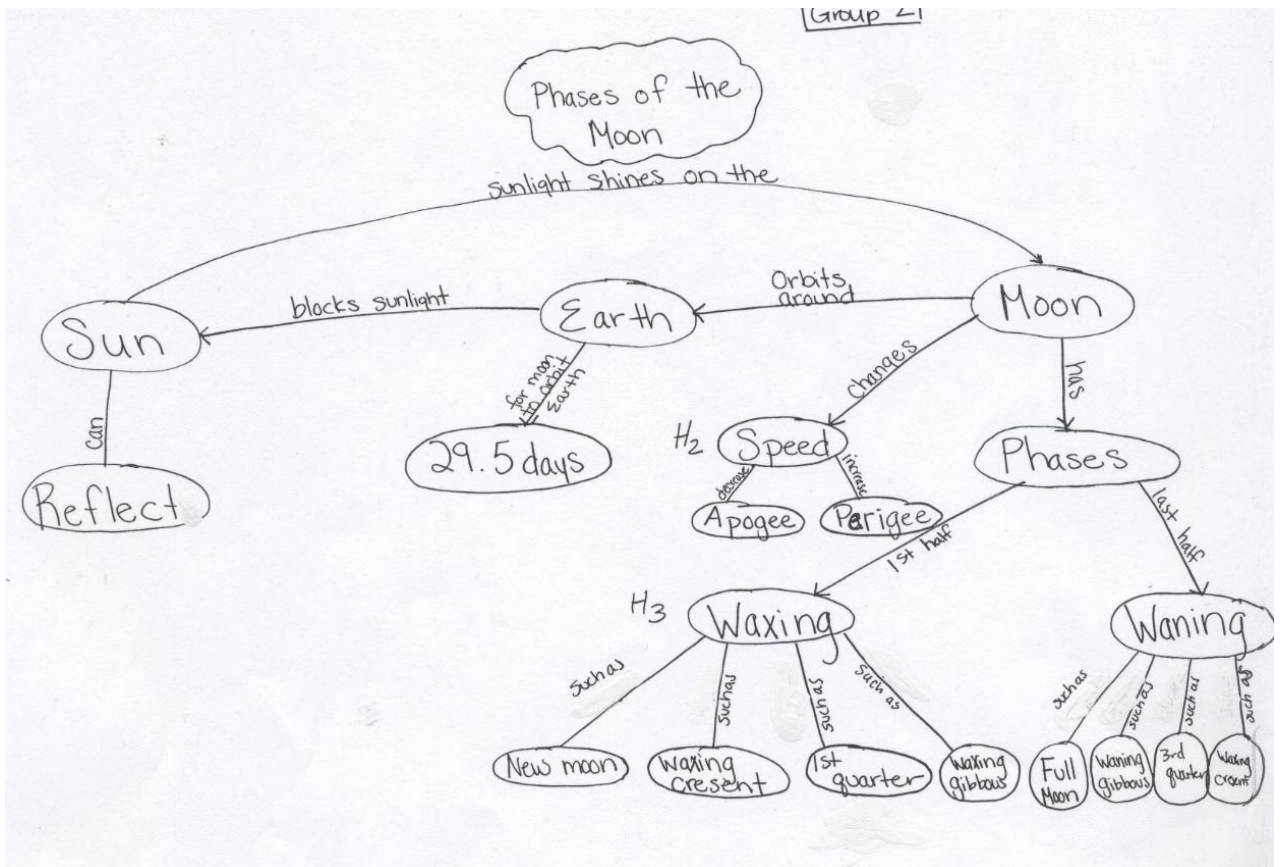 Group 2
Phases of the
Moon
sunlight shines on the
Sun
blocks sunlight
Earth
Orbits
around
Moon
can
Reflect
for moon
to orbit
Earth
29.5 days
changes
has
H2
Speed
decrease
increase
Apogee
Perigee
Phases
1st half
last half
H3
Waxing
Waning
such as
such as
such as
such as
such as
such as
such as
such as
New moon
Waxing
cresent
1st
quarter
Waxing
gibbous
Full
Moon
Waning
gibbous
3rd
quarter
cresent